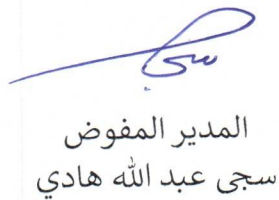 سجى
المدير المفوض
سجى عبد الله هادي